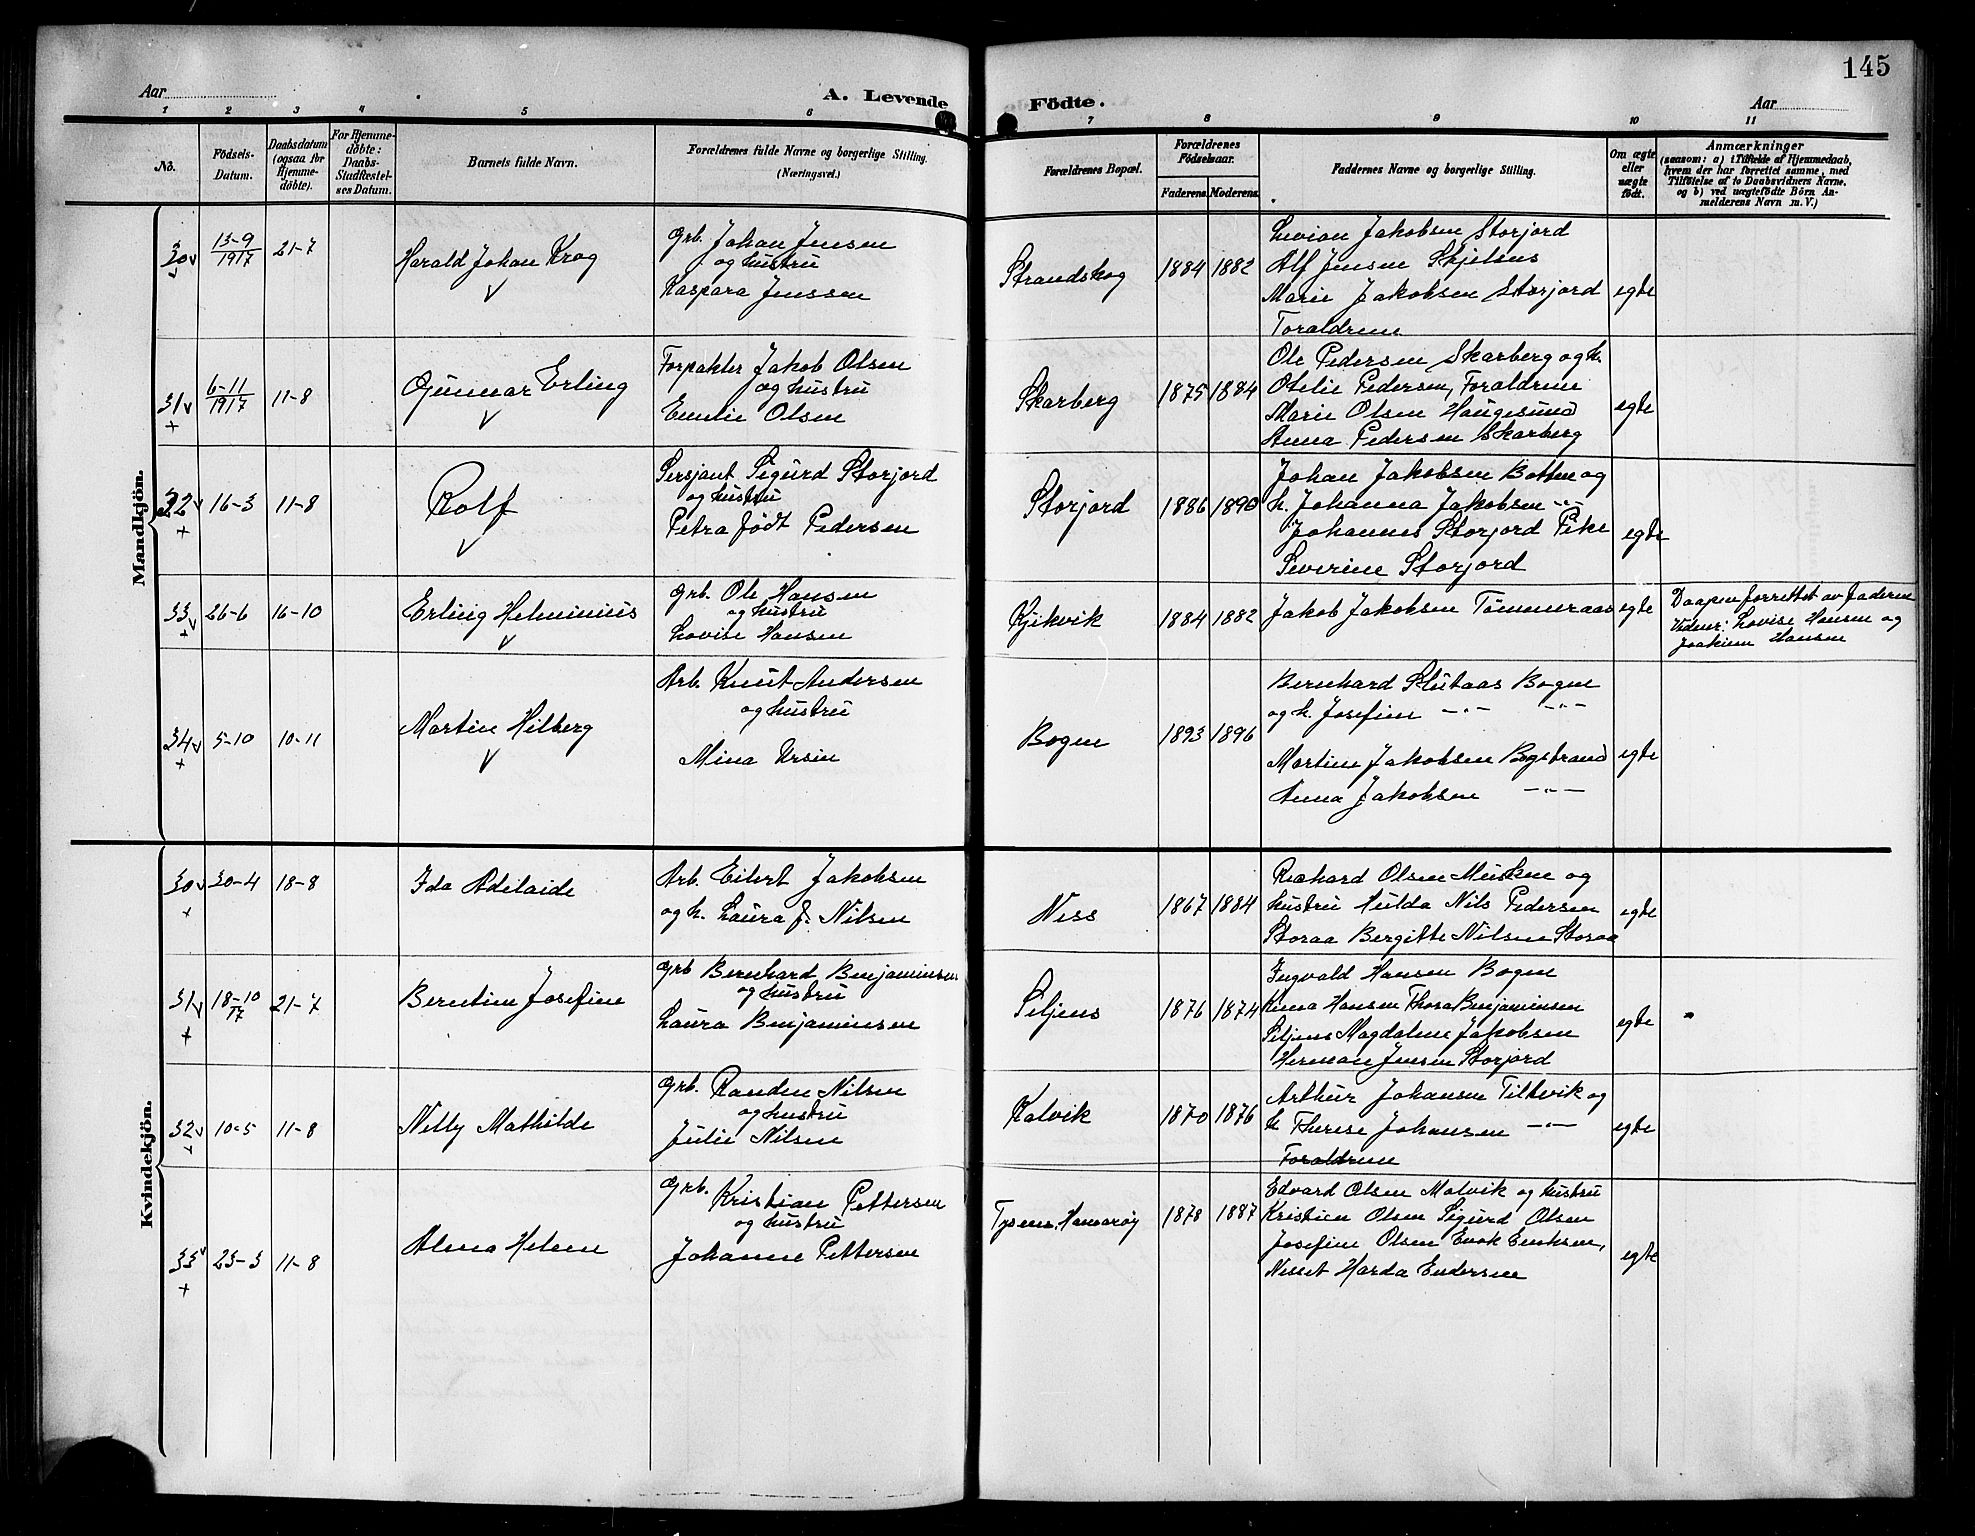 145
Aar
A. Levende
Födte.
Aar
1 2 3 4 5 6 7 8 9 10 11
No.
Födsels-Datum.
Daabsdatum (ogsaa for Hjemmedöbte).
For Hjemmedöbte: Daabs-Stadfæstelses Datum.
Barnets fulde Navn.
Forældrenes fulde Navne og borgerlige Stilling.
(Næringsvei.)
Forældrenes Bopæl.
Forældrenes Födselsaar.
Faderens Moderens
Faddernes Navne og borgerlige Stilling.
Om ægte eller uægte födt.
Anmærkninger
(saasom: a) i Tilfælde af Hjemmedaab,
hvem der har forrettet samme, med
Tilföielse af to Daabsvidners Navne,
og b) ved uægtefödte Börn An-
melderens Navn m. V.)
Mandkjön.
30 13-9 1917 21-7
Harald Johan Krog
Grb. Johan Jensen
og hustru
Kaspara Jenssen
Strandskog
1884 1882
Jakobsen Storjord
Alf Jensen
Marie Jakobsen Storjord
Foraldrene
egte
31 6-11 1917 11-8
Gunnar Erling
Forpakter Jakob Olsen
og hustru
Emelie Olsen
Skarberg
1875 1884
Ole Pedersen Skarberg og h.
Otelie Pedersen, Foraldrene
Marie Olsen Haugesund
Anna Pedersen Skarberg
egte
32 16-3 11-8
Rolf
Sersjant Sigurd Storjord
og hustru
Petra født Pedersen
Storjord
1886 1890
Johan Jakobsen Botten og
h. Johanna Jakobsen -"-
Johannes Storjord Pike
Severine Storjord
egte
33 26-6 16-10
Erling Helminius
Grb. Ole Hansen
og hustru
Lovise Hansen
Kjikvik
1884 1882
Jakob Jakobsen Tømmeraas
egte
Daapen forrettet av faderen
Vidner: Lovise Hansen og
Joakim Hansen
34 5-10 10-11
Martin Hilberg
Arb. Knut Andersen
og hustru
Mina Ursin
Bogen
1893 1896
Bernhard Bogen
og h. Josefine -"- -"-
Martine Jakobsen Bogstrand
Anna Jakobsen -"-
egte
Kvindekjön.
30 30-4 18-8
Ida Adelaide
Arb. Eilert Jakobsen
og h. Laura f. Nilsen
Ness
1867 1884
Richard Olsen Musken og
hustru Hulda Nils Pedersen
Storaa Bergitte Nilsen Storaa
egte
31 18-10 17 21-7
Berntine Josefine
Grb Bernhard Benjaminsen
og hustru
Laura Benjaminsen
Siljens
1876 1874
Ingvald Hansen Bogen
Hansen Thora Benjaminsen
Siljens Magdalene Jakobsen
Herman Jensen Storjord
egte
32 10-5 11-8
Nelly Mathilde
Grb. Randen Nilsen
og hustru
Julie Nilsen
Kalvik
1870 1876
Arthur Johansen Tiltvik og
h Therese Johansen -"-
Foraldrene
egte
33 23-3 11-8
Alma Helene
Grb. Kristian Pettersen
og hustru
Johanne Pettersen
Hamarøy
1878 1887
Edvard Olsen Molvik og hustru
Kristien Olsen Sigurd Olsen
Josefine Olsen Enok Eriksen,
Nesset Harda Endersen
egte